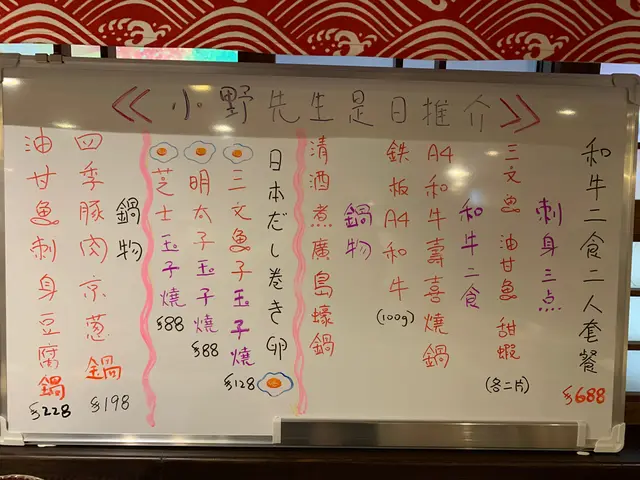 《小野先生是日推介》
和牛二食二人套餐
$688
刺身三点
三文魚 油甘魚 甜蝦
(各二片)
和牛二食
A4和牛壽喜燒鍋
鉄板A4和牛
(100g)
鍋物
清酒煮廣島蠔鍋
日本だし巻き卵
三文魚子玉子燒
$128
明太子玉子燒
$88
芝士玉子燒
$88
鍋物
四季豚肉京蔥鍋
$198
油甘魚刺身豆腐鍋
$228